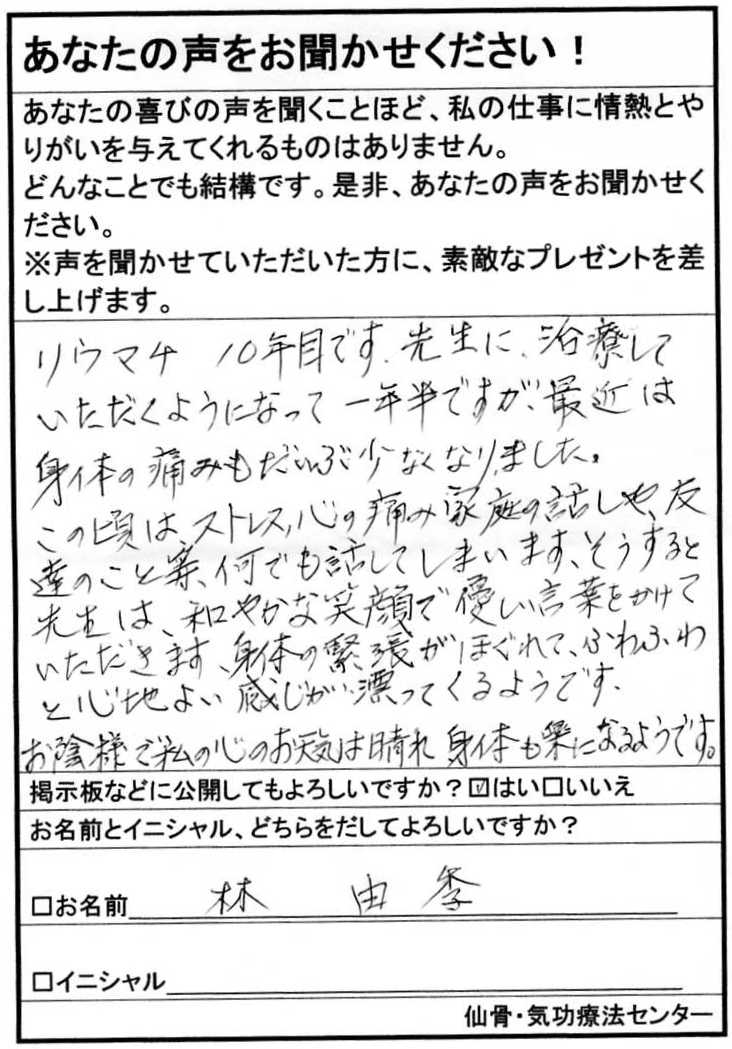 あなたの声をお聞かせください！
あなたの喜びの声を聞くことほど、私の仕事に情熱とや
りがいを与えてくれるものはありません。
どんなことでも結構です。是非、あなたの声をお聞かせく
ださい。
※声を聞かせていただいた方に、素敵なプレゼントを差
し上げます。
リウマチ 10年目です。先生に、治療して
いただくようになって一年半ですが、最近は
身体の痛みもだいぶ少なくなりました。
この頃は、ストレス、心の痛み家庭の話しや、友
達のこと等、何でも話してしまいます、そうすると
先生は、和やかな笑顔で優しい言葉をかけて
いただきます、身体の緊張がほぐれて、ふわふわ
と心地よい感じが漂ってくるようです。
お陰様で私の心のお天気は晴れ身体も楽になるようです。
掲示板などに公開してもよろしいですか？☑はい□いいえ
お名前とイニシャル、どちらをだしてよろしいですか？
□お名前 林 由季
□イニシャル
仙骨・気功療法センター